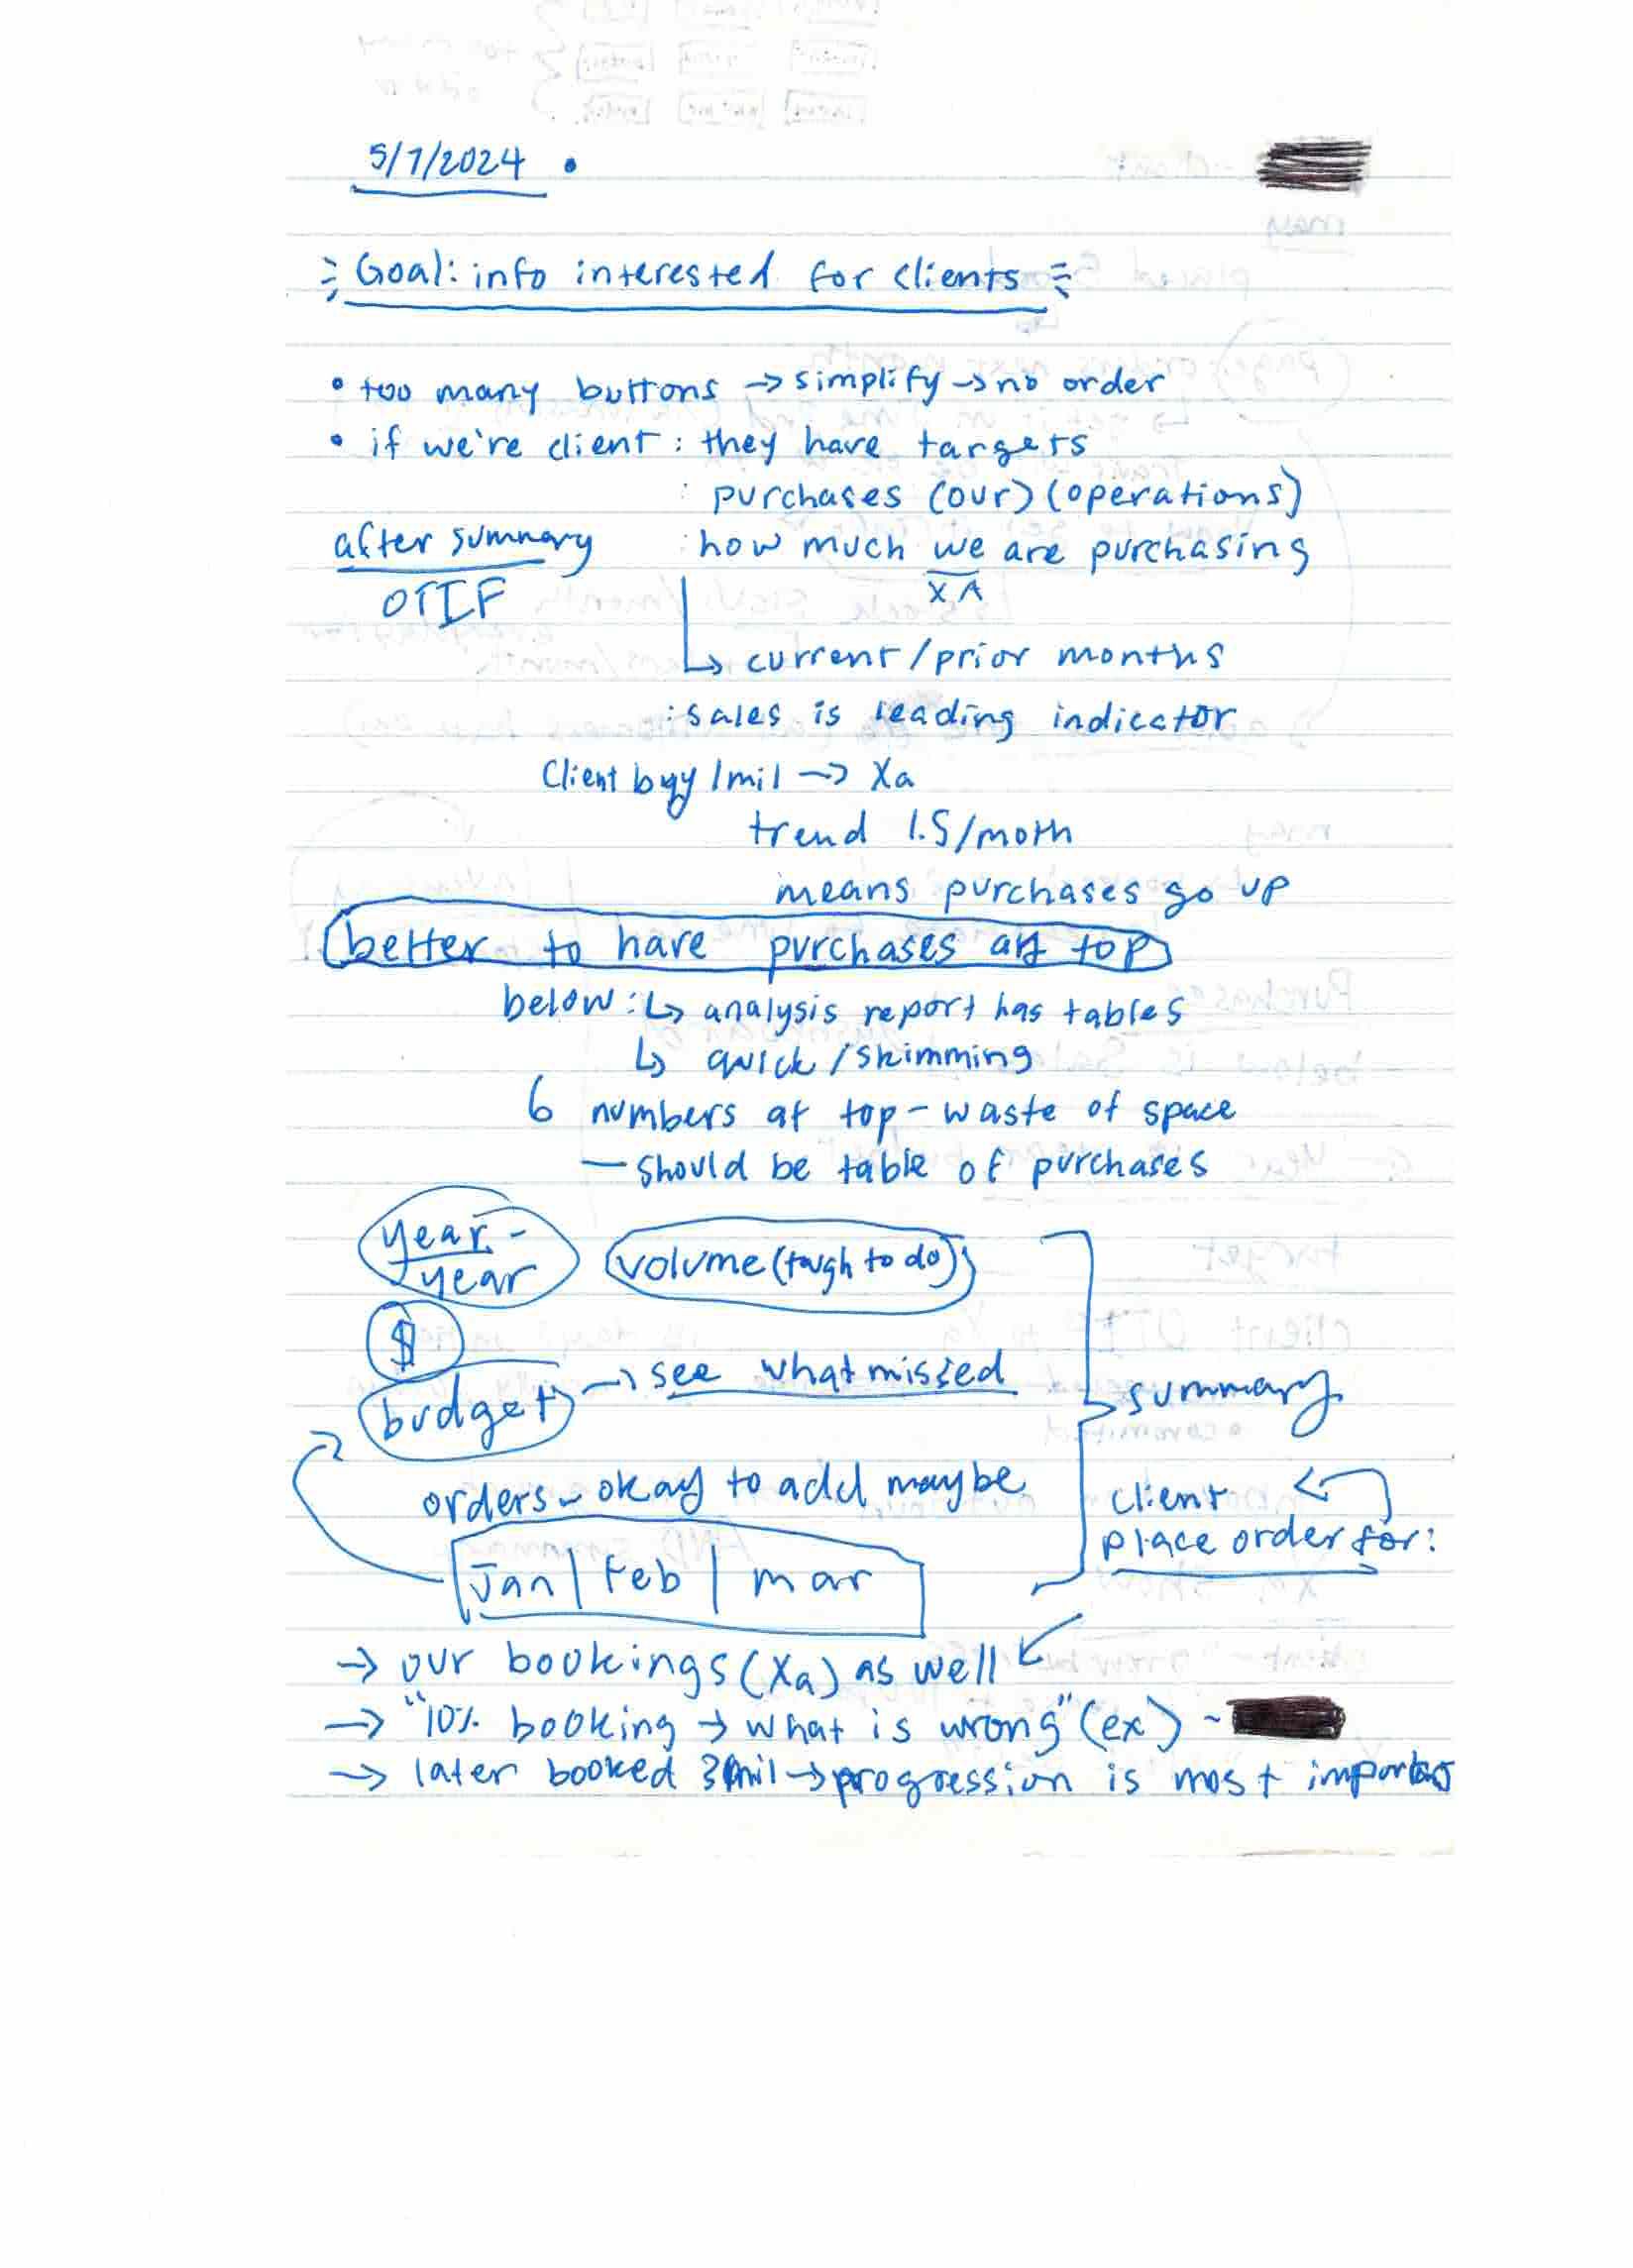 5/7/2024 •
Goal: info interested for clients
• too many buttons → simplify → no order
• if we're client : they have targets
: purchases (our) (operations)
after summary : how much we are purchasing
OTIF XA
↳ current/prior months
: sales is leading indicator
Client buy 1mil → Xa
trend 1.5/moth
means purchases go up
better to have purchases at top
below: ↳ analysis report has tables
↳ quick/skimming
6 numbers at top - waste of space
— should be table of purchases
year-
year
volume (tough to do)
$
budget → see what missed
summary
orders - okay to add maybe
client
place order for:
Jan | Feb | mar
→ our bookings (Xa) as well
→ "10% booking → what is wrong" (ex) -
→ later booked mil → progression is most important